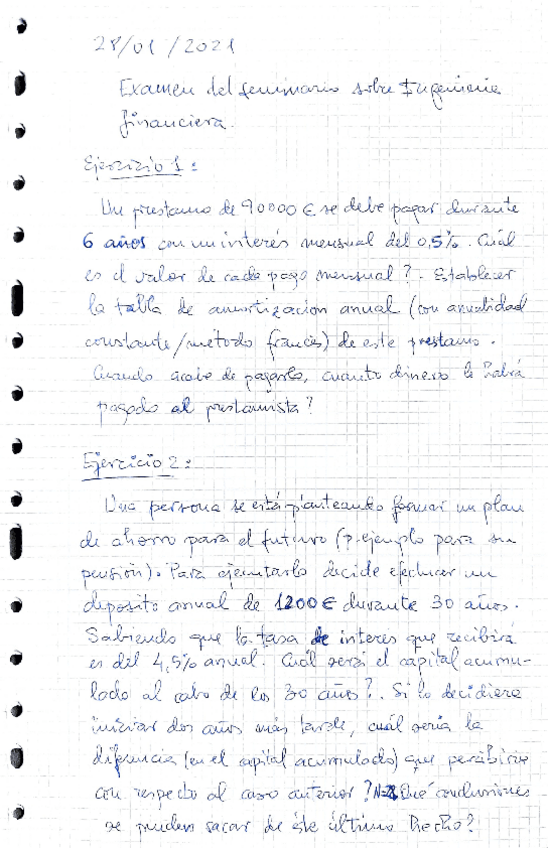 28/01/2021
Examen del seminario sobre Ingenieria
financiera.
Ejercicio 1:
Un prestamo de 90000 € se debe pagar durante
6 años con un interés mensual del 0,5%. Cuál
es el valor de cada pago mensual?. Establecer
la tabla de amortización anual (con anualidad
constante/método francés) de este prestamo.
Cuando acabe de pagarlo, cuánto dinero le habrá
pagado al prestamista?
Ejercicio 2:
Una persona se está planteando formar un plan
de ahorro para el futuro (p. ejemplo para su
pensión). Para ejecutarlo decide efectuar un
deposito anual de 1200 € durante 30 años.
Sabiendo que la tasa de interes que recibirá
es del 4,5% anual. Cuál será el capital acumu-
lado al cabo de los 30 años?. Si lo decidiera
iniciar dos años más tarde, cuál sería la
diferencia (en el capital acumulado) que percibiría
con respecto al caso anterior? Qué conclusiones
se pueden sacar de éste último hecho?